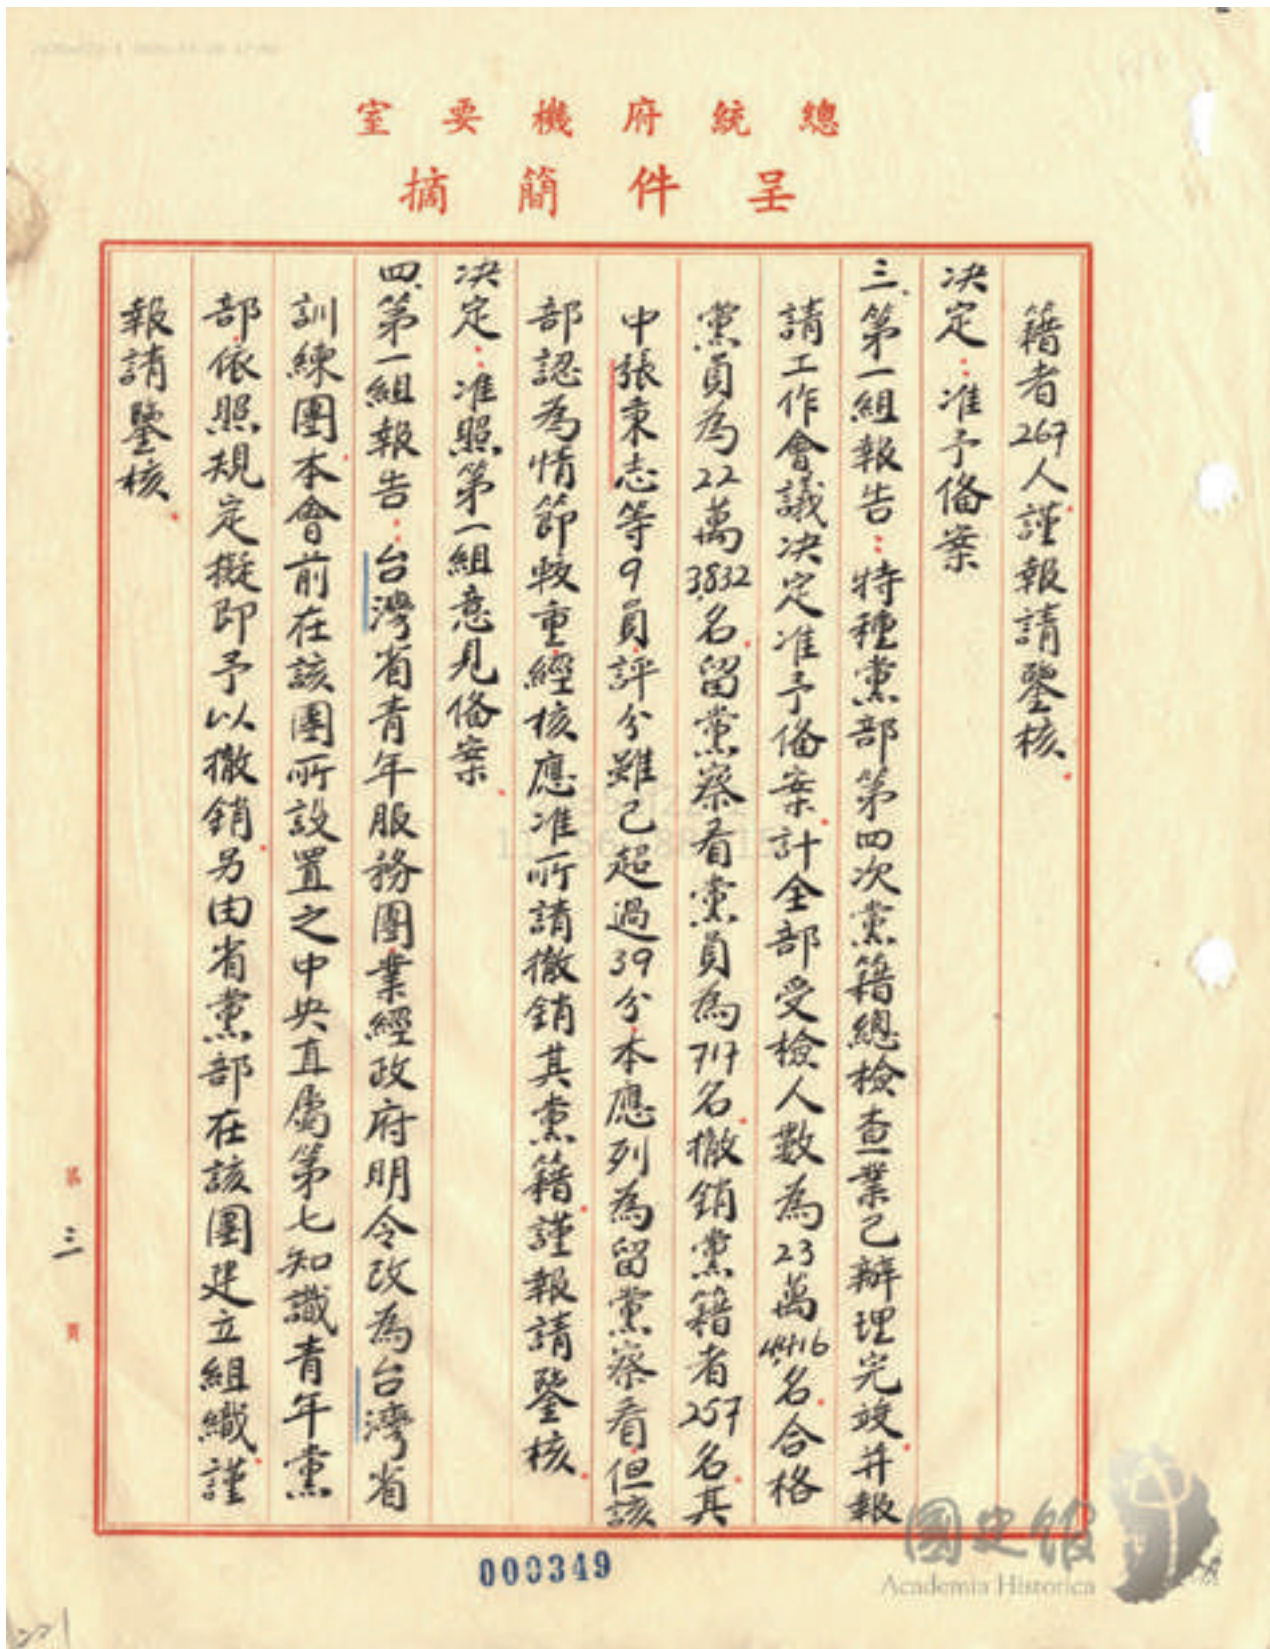 總統府機要室
呈件簡摘
籍者267人謹報請鑒核
決定：准予俻案
三、第一組報告：特種黨部第四次黨籍總檢查業已辦理完竣并報
請工作會議決定准予俻案計全部受檢人數為23萬4,416名合格
黨員為22萬3,832名留黨察看黨員為717名撤銷黨籍者257名其
中張秉志等9員評分雖已超過39分本應列為留黨察看但該
部認為情節較重經核應准所請撤銷其黨籍謹報請鑒核
決定：准照第一組意見俻案
四、第一組報告：台灣省青年服務團業經政府明令改為台灣省
訓練團本會前在該團所設置之中央直屬第七知識青年黨
部依照規定擬即予以撤銷另由省黨部在該團建立組織謹
報請鑒核
第三頁
000349
國史館
Academia Historica